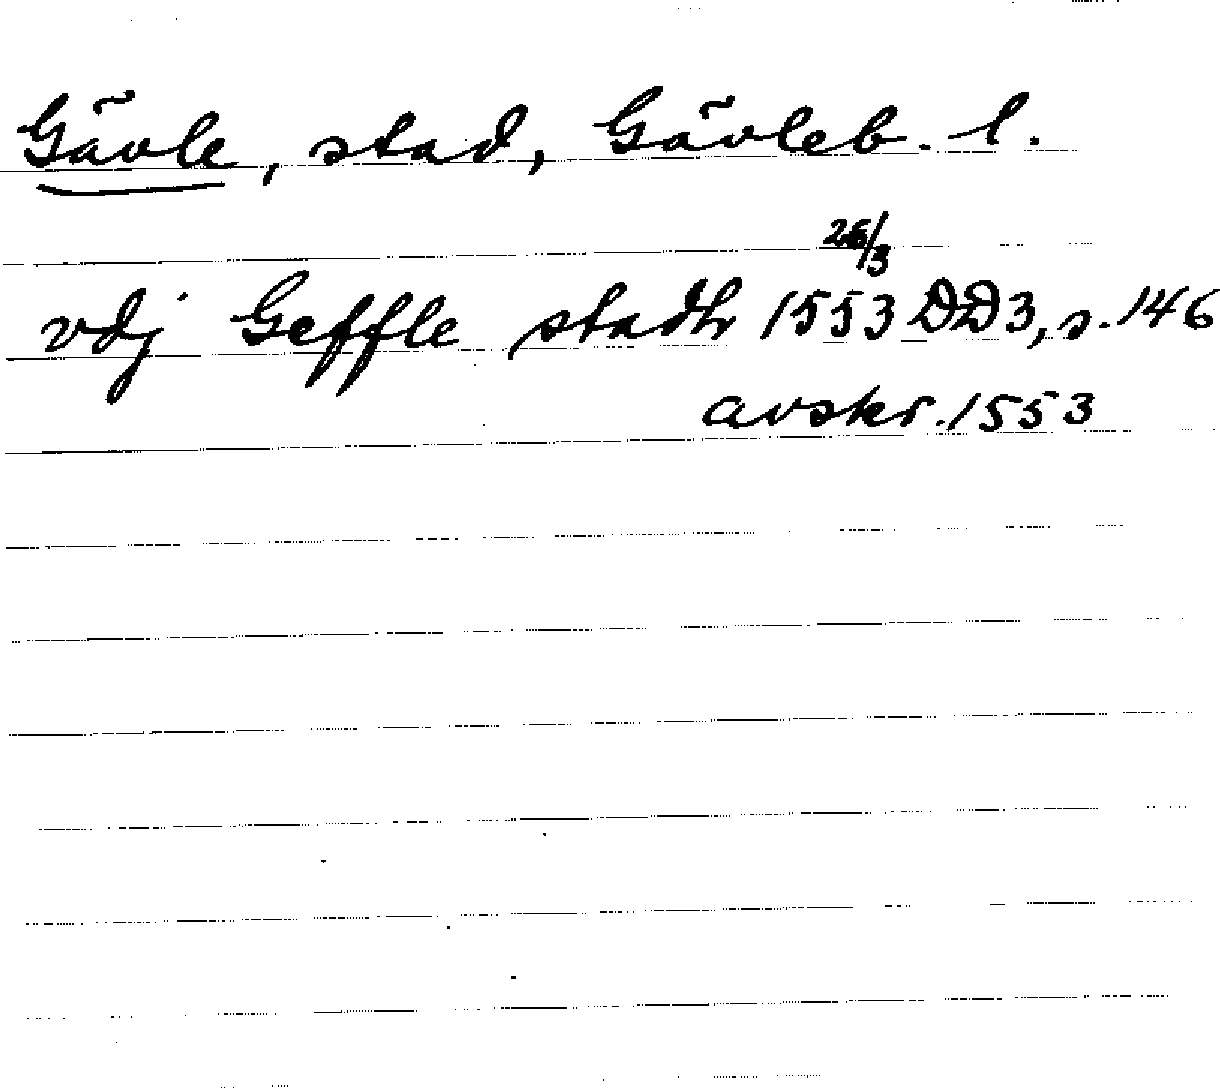 Gävle, stad, Gävleb. l.
26/3
vdj Geffle stadh 1553 DD3, s. 146
avskr. 1553